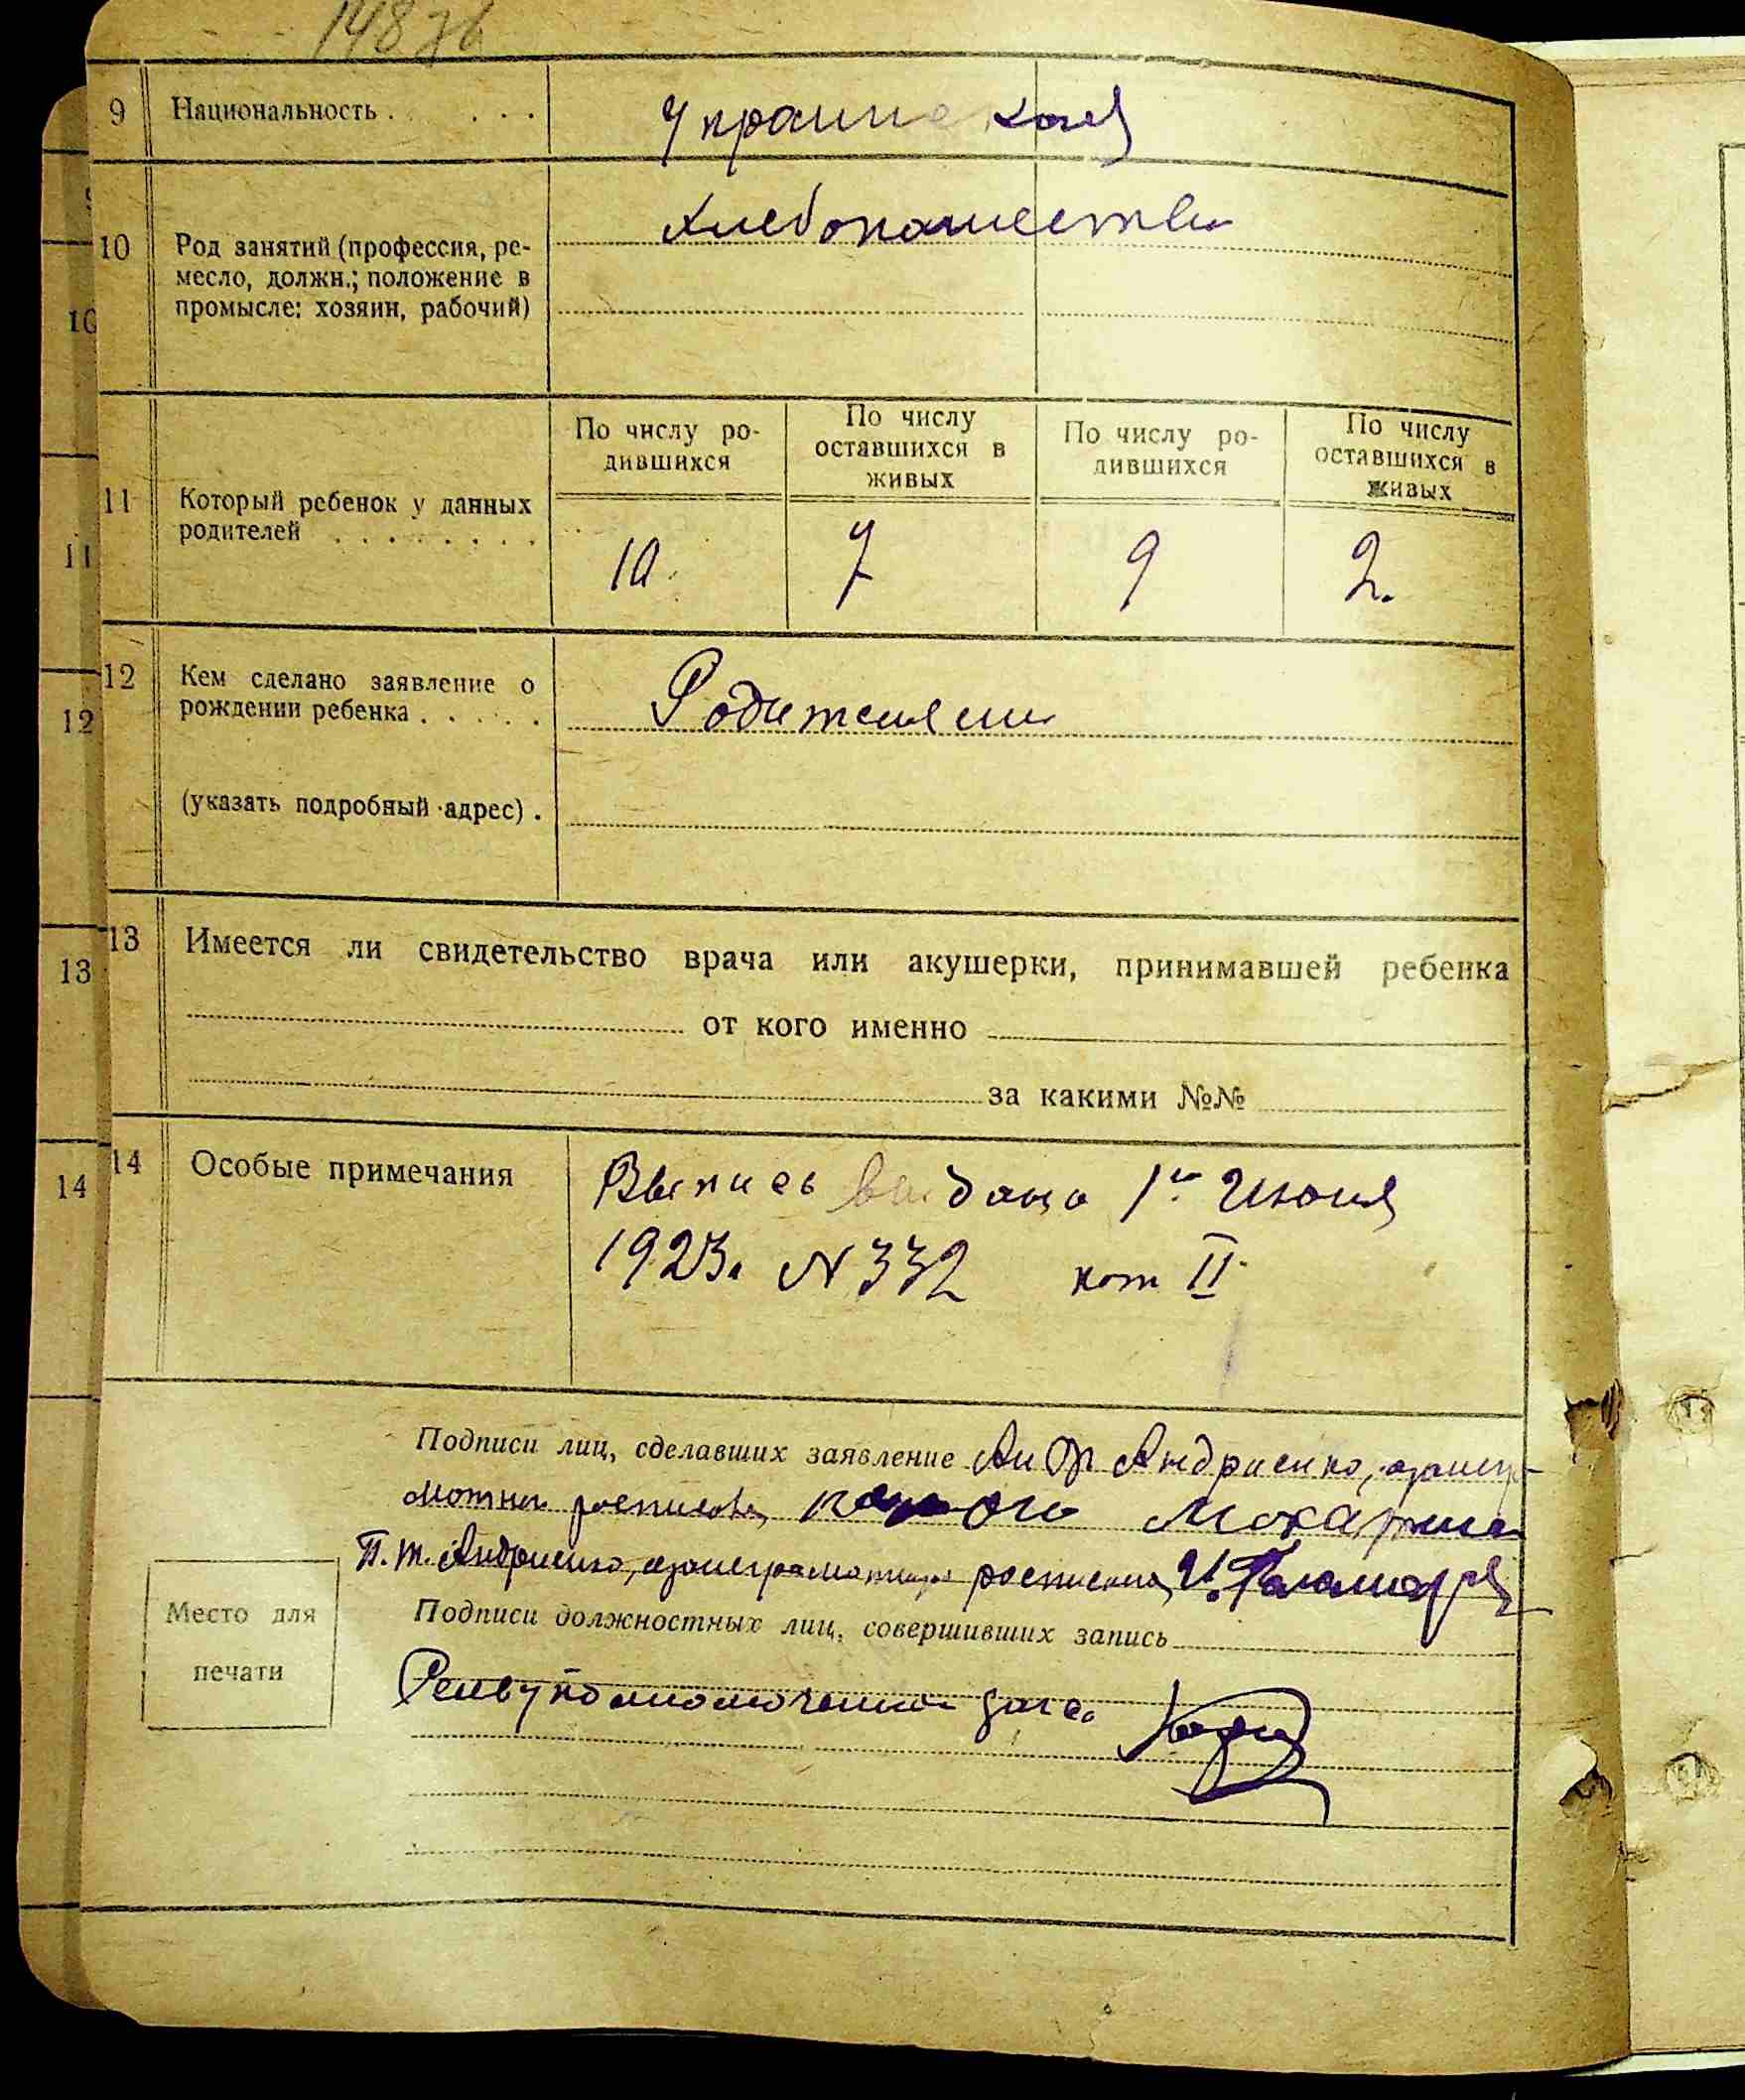 148
9 Национальность . . . . Украинская
Хлебопашество
10 Род занятий (профессия, ре-
месло, должн.; положение в
промысле: хозяин, рабочий)
По числу ро- По числу По числу ро- По числу
дившихся оставшихся в дившихся оставшихся в
живых живых
11 Который ребенок у данных
родителей . . . . . . . .
10. 7 9 2.
12 Кем сделано заявление о
рождении ребенка . . . . . Родителями
(указать подробный адрес) .
13 Имеется ли свидетельство врача или акушерки, принимавшей ребенка
от кого именно
за какими №№
14 Особые примечания Выпись выдана 1го Июня
1923. N 332 кат II
Подписи лиц, сделавших заявление Андриенко,
П. т. Андриенко,
Подписи должностных лиц, совершивших запись
Место для
печати
9
10
11
12
13
14